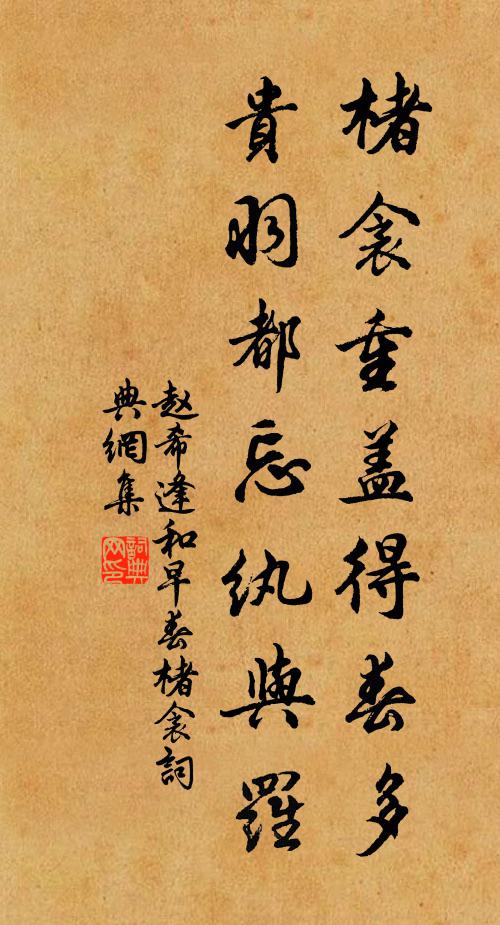 楮衾重盖得春多
貴羽都忘纨與羅
赵希逢和早春楮衾詞
典網集
詞典
网印